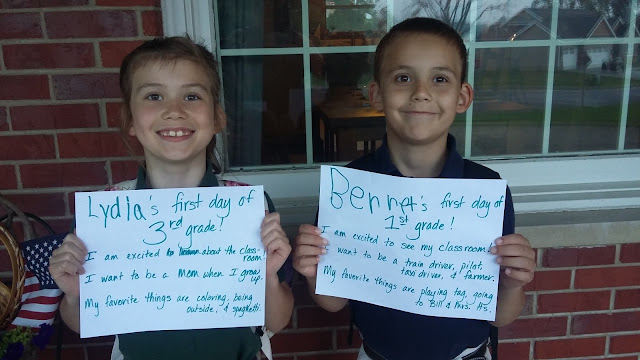 Lydia's first day of
3rd grade!
I am excited about the class-
room.
I want to be a Mom when I grow
up.
My favorite things are coloring, being
outside, & spaghetti.
Bennet's first day of
1st grade!
I am excited to see my classroom.
I want to be a train driver, pilot,
taxi driver, & farmer.
My favorite things are playing tag, going
to Bill & Mrs.